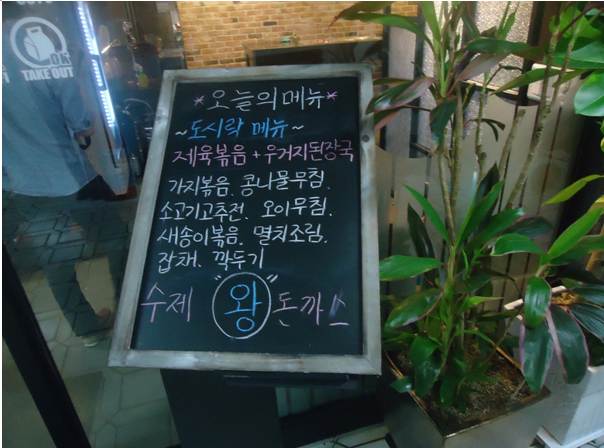 OK
TAKE OUT
*오늘의메뉴*
~도시락 메뉴~
제육볶음+우거지된장국
가지볶음. 콩나물무침.
소고기고추전. 오이무침.
새송이볶음. 멸치조림.
잡채. 깍두기
수제 "왕" 돈까스